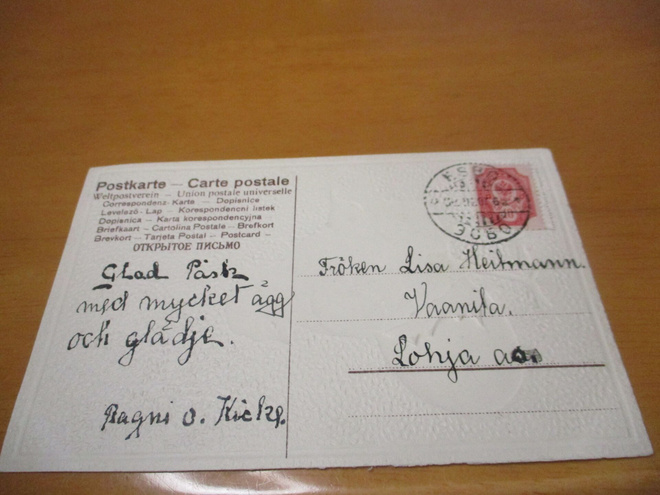 Postkarte — Carte postale
Weltpostverein – Union postale universelle
Correspondenz-Karte – Dopisnice
Levelezö-Lap – Korespondencni listek
Dopisnica – Karta korespondencyjna
Briefkaart – Cartolina Postale – Brefkort
Brevkort – Tarjeta Postal – Postcard –
ОТКРЫТОЕ ПИСЬМО
Glad Påsk
med mycket ägg
och glädje.
Ragni o.
ESBO
ЭСБО
Fröken Lisa Heitmann.
Vaanila.
Lohja